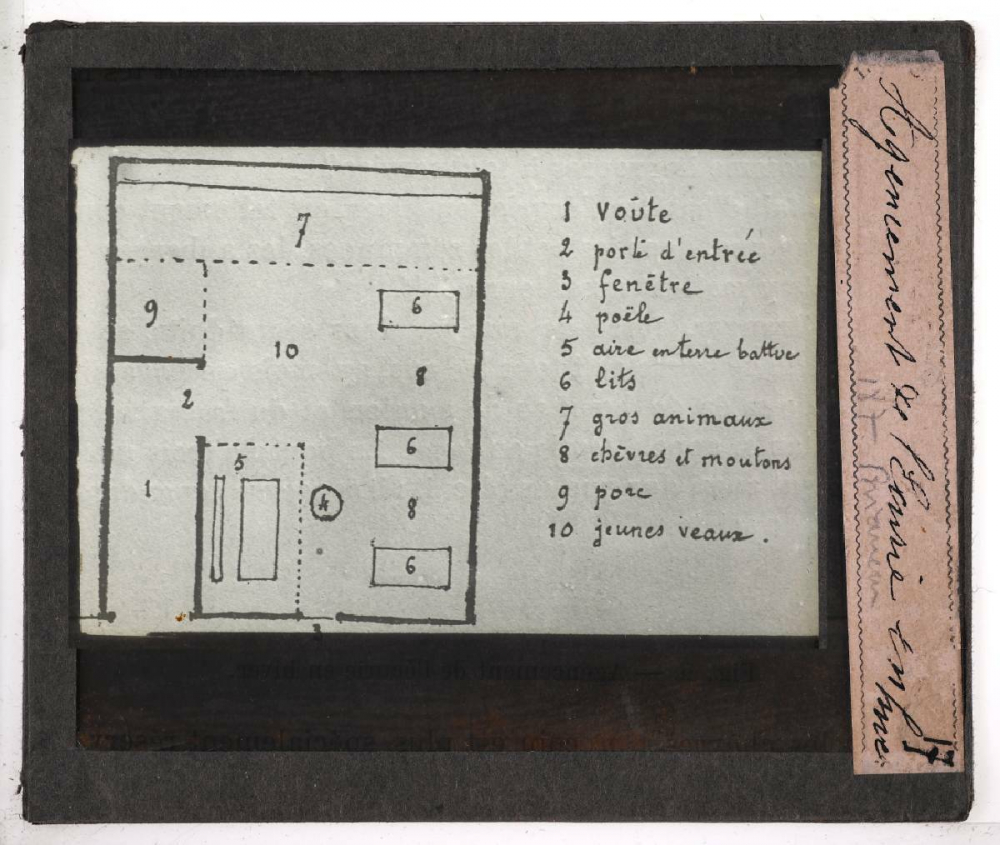 7
9
6
10
8
2
6
5
1
4
8
6
3
1 Voûte
2 porte d'entrée
3 fenêtre
4 poële
5 aire en terre battue
6 lits
7 gros animaux
8 chèvres et moutons
9 porc
10 jeunes veaux.
Agencement de l'Ecurie
17
Agencement de l'écurie en hiver.
est plus spécialement